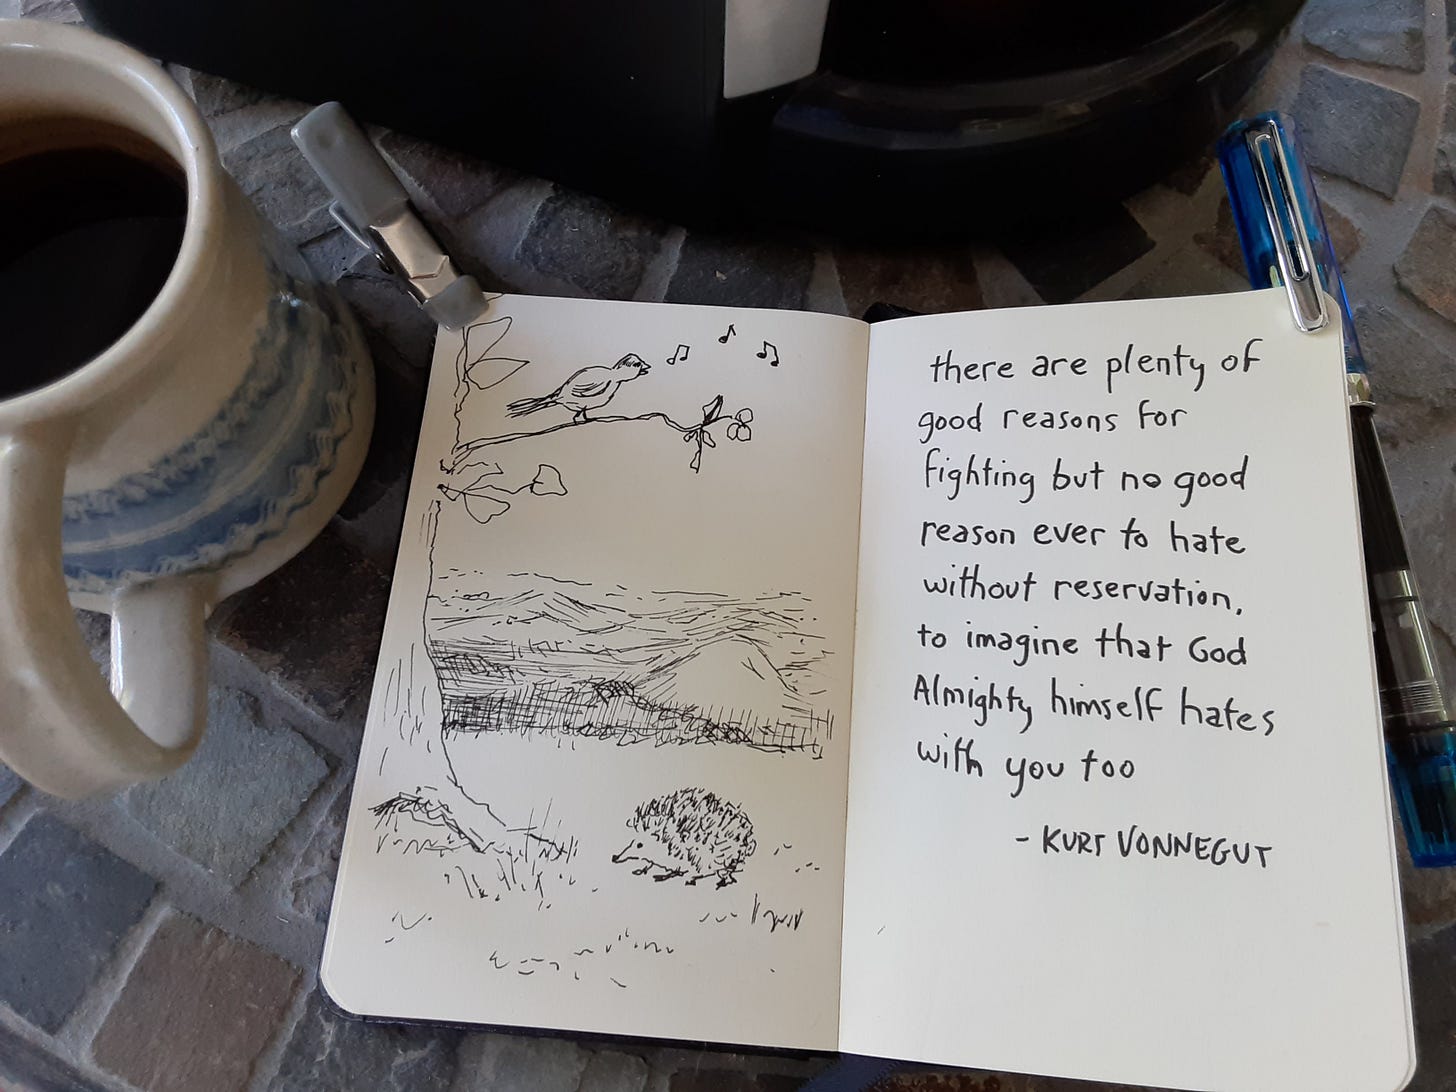 there are plenty of
good reasons for
fighting but no good
reason ever to hate
without reservation,
to imagine that God
Almighty himself hates
with you too
- KURT VONNEGUT